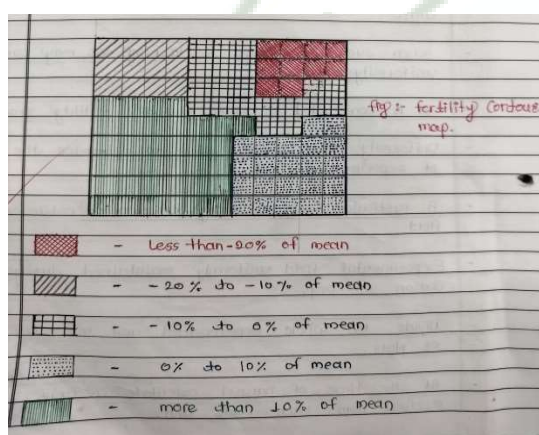 fig :- fertility Contour
map.
- Less than -20% of mean
- -20% to -10% of mean
- -10% to 0% of mean
- 0% to 10% of mean
- more than 10% of mean